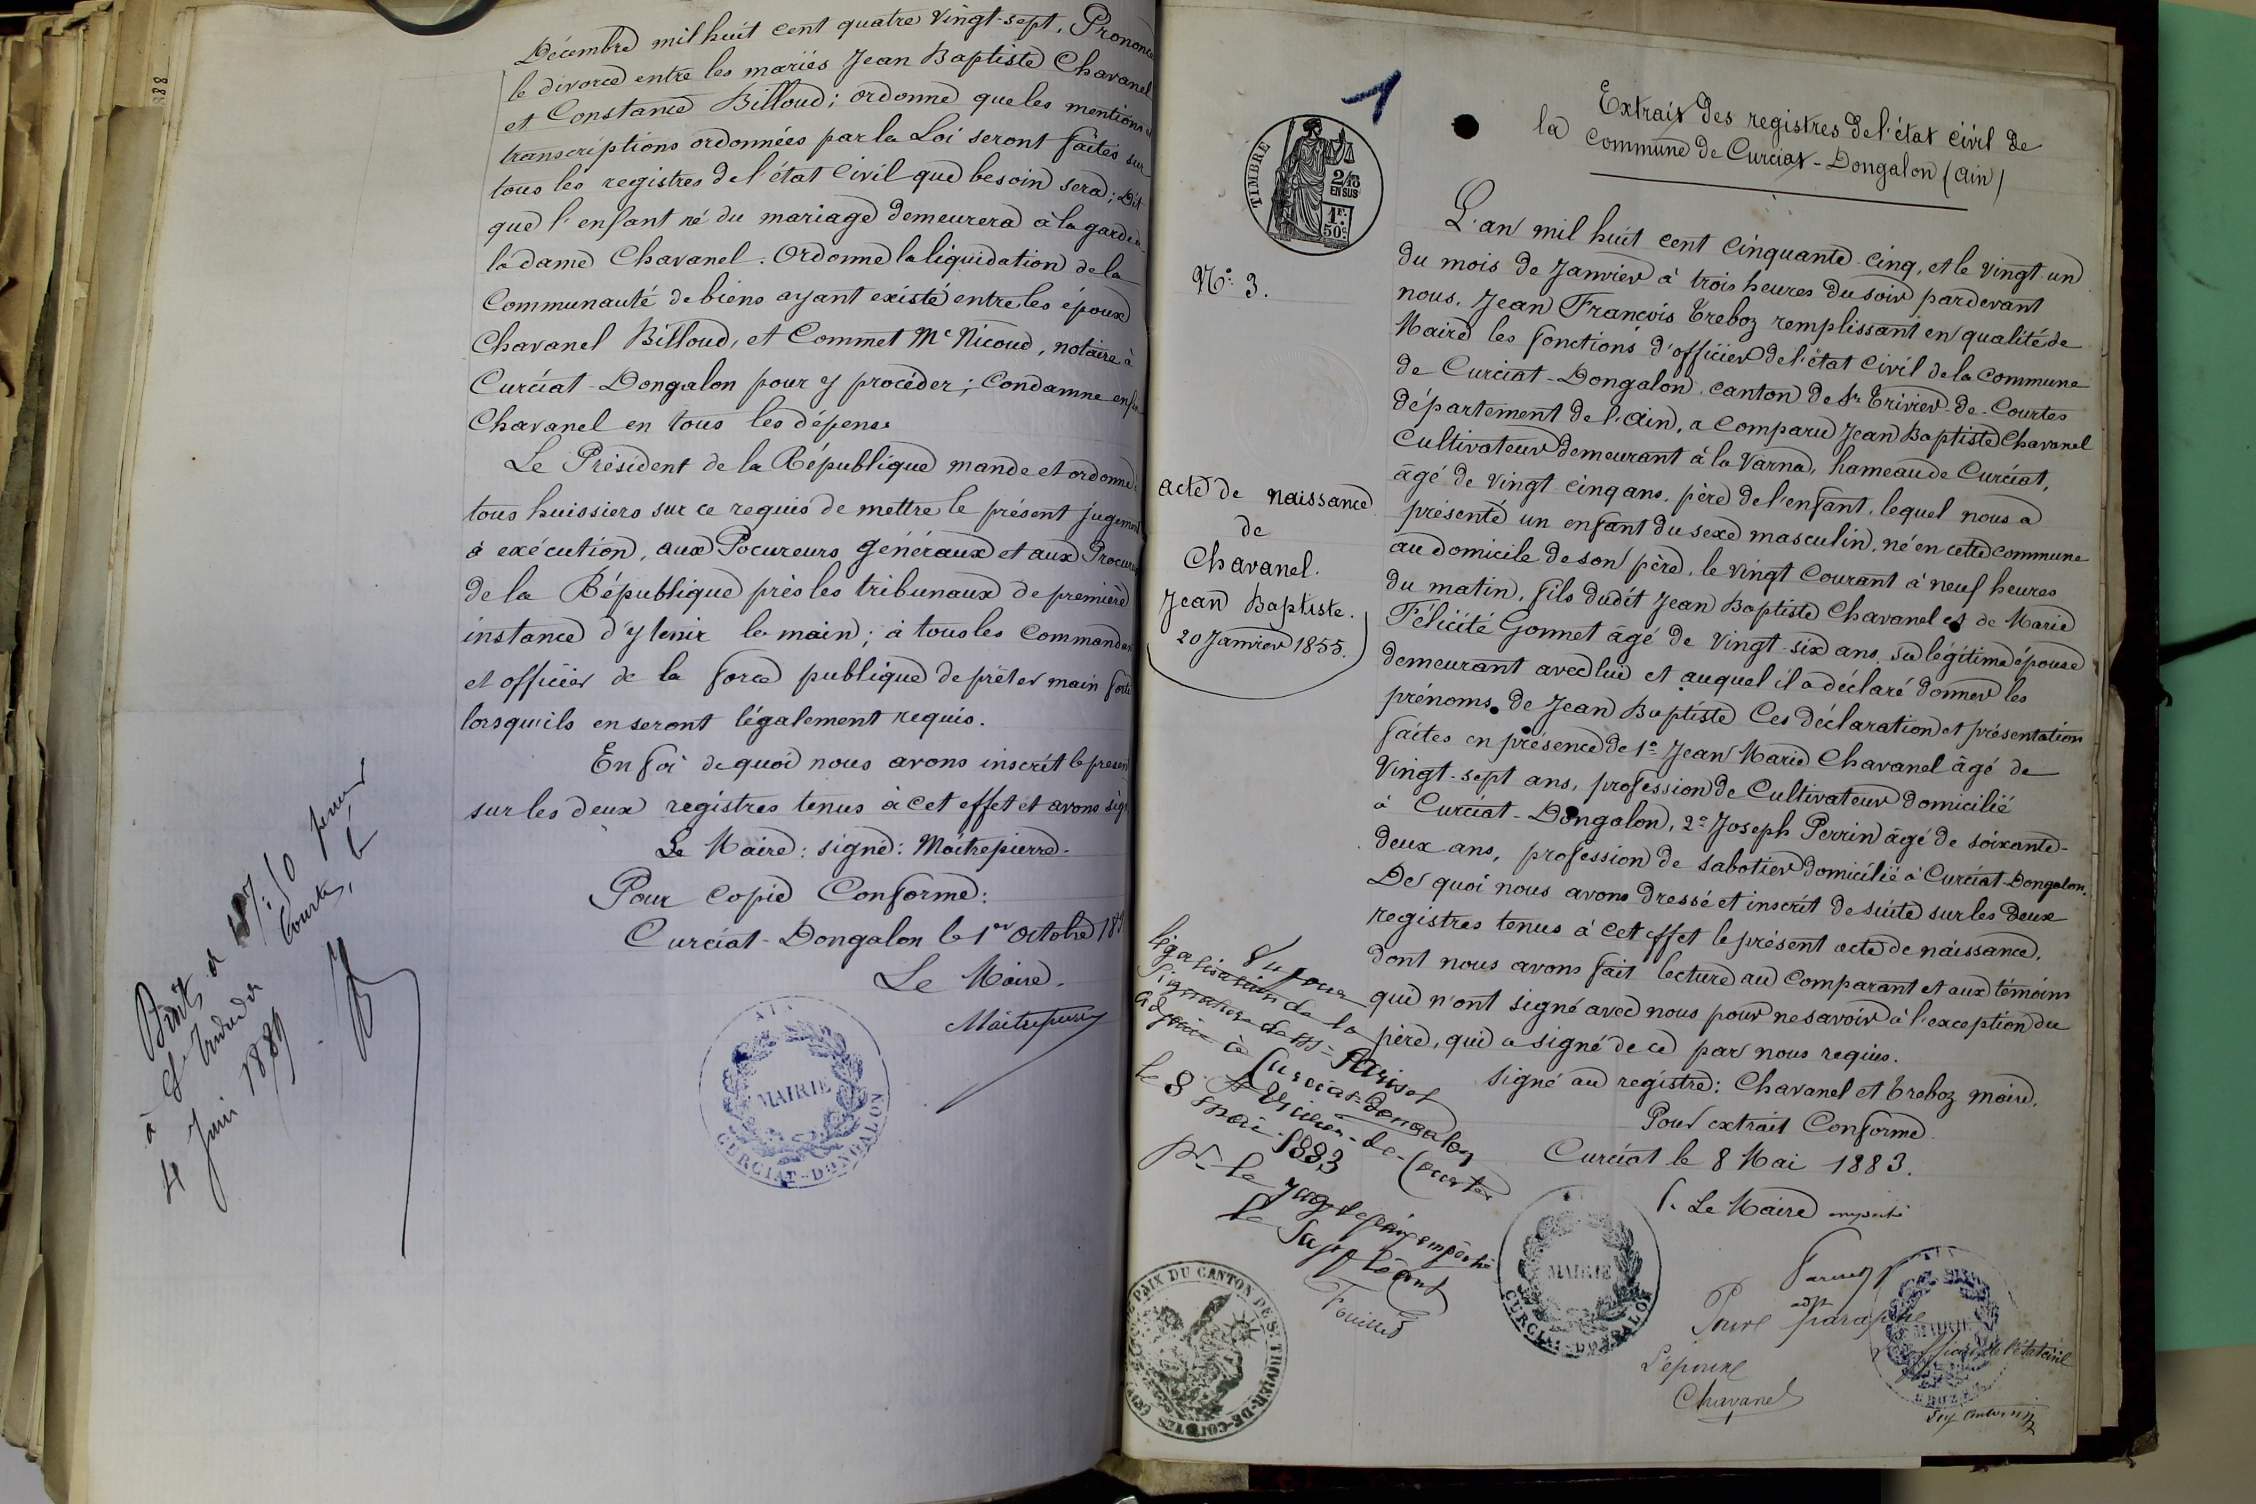 Décembre mil huit cent quatre vingt-sept, Prononce
le divorce entre les mariés Jean Baptiste Chavanel
et Constance Billoud; ordonne que les mentions et
transcriptions ordonnées par la Loi seront faites sur
tous les registres de l'état civil que besoin sera; Dit
que l'enfant né du mariage demeurera à la garde de
la dame Chavanel. Ordonne la liquidation de la
Communauté de biens ayant existé entre les époux
Chavanel Billoud, et Commet Me Nicoud, notaire à
Curciat-Dongalon pour y procéder; Condamne enfin
Chavanel en tous les dépens.
Le Président de la République mande et ordonne à
tous huissiers sur ce requis de mettre le présent jugement
à exécution, aux Pocureurs généraux et aux Procureurs
de la République près les tribunaux de première
instance d'y tenir la main; à tous les Commandants
et officier de la force publique de prêter main forte
lorsqu'ils en seront légalement requis.
En foi de quoi nous avons inscrit le présent
sur les deux registres tenus à cet effet et avons signé
Le Maire: signé: Maîtrepierre.
Pour copie Conforme:
Curciat-Dongalon le 1er Octobre 18
Le Maire.
Maîtrepierre
AIN
MAIRIE
CURCIAT-DONGALON
à St Trivier de Courtes, le
4 Juin 1889
1
TIMBRE
2/10
EN SUS
1F.
50c.
Extrait des registres de l'état civil de
la commune de Curciat-Dongalon (Ain)
No 3.
acte de naissance
de
Chavanel.
Jean Baptiste.
20 Janvier 1855.
L'an mil huit cent cinquante-cinq, et le vingt-un
du mois de Janvier à trois heures du soir pardevant
nous, Jean François Treboz remplissant en qualité de
Maire les fonctions d'officier de l'état civil de la commune
de Curciat-Dongalon, canton de St Trivier-de-Courtes
département de l'Ain, a comparu Jean Baptiste Chavanel
Cultivateur demeurant à la Varna, hameau de Curciat,
âgé de vingt-cinq ans, père de l'enfant, lequel nous a
présenté un enfant du sexe masculin, né en cette commune
au domicile de son père, le vingt courant à neuf heures
du matin, fils dudit Jean Baptiste Chavanel et de Marie
Félicité Gonnet âgé de vingt-six ans, sa légitime épouse
demeurant avec lui et auquel il a déclaré donner les
prénoms de Jean Baptiste Ces déclaration et présentation
faites en présence de 1o Jean Marie Chavanel âgé de
Vingt-sept ans, profession de Cultivateur domicilié
à Curciat-Dongalon, 2o Joseph Perrin âgé de soixante-
deux ans, profession de sabotier domicilié à Curciat-Dongalon.
De quoi nous avons dressé et inscrit de suite sur les deux
registres tenus à cet effet le présent acte de naissance,
dont nous avons fait lecture au comparant et aux témoins
qui n'ont signé avec nous pour ne savoir à l'exception du
père, qui a signé de ce par nous requis.
signé au registre: Chavanel et Treboz maire.
Pour extrait Conforme.
Curciat le 8 Mai 1883.
P. Le Maire empêché
adjt
Vu pour
légalisation de la
signature de Mr Parisot
adjoint à Curciat-Dongalon
St Trivier-de-Courtes
le 8 mai 1883
Pr le juge de paix empêché
Le Suppléant
MAIRIE
CURCIAT-DONGALON
PAIX DU CANTON DE ST TRIVIER-DE-COURTES
Pour paraphe
L'officier de l'état civil
L'époux
Chavanel
AIN
MAIRIE